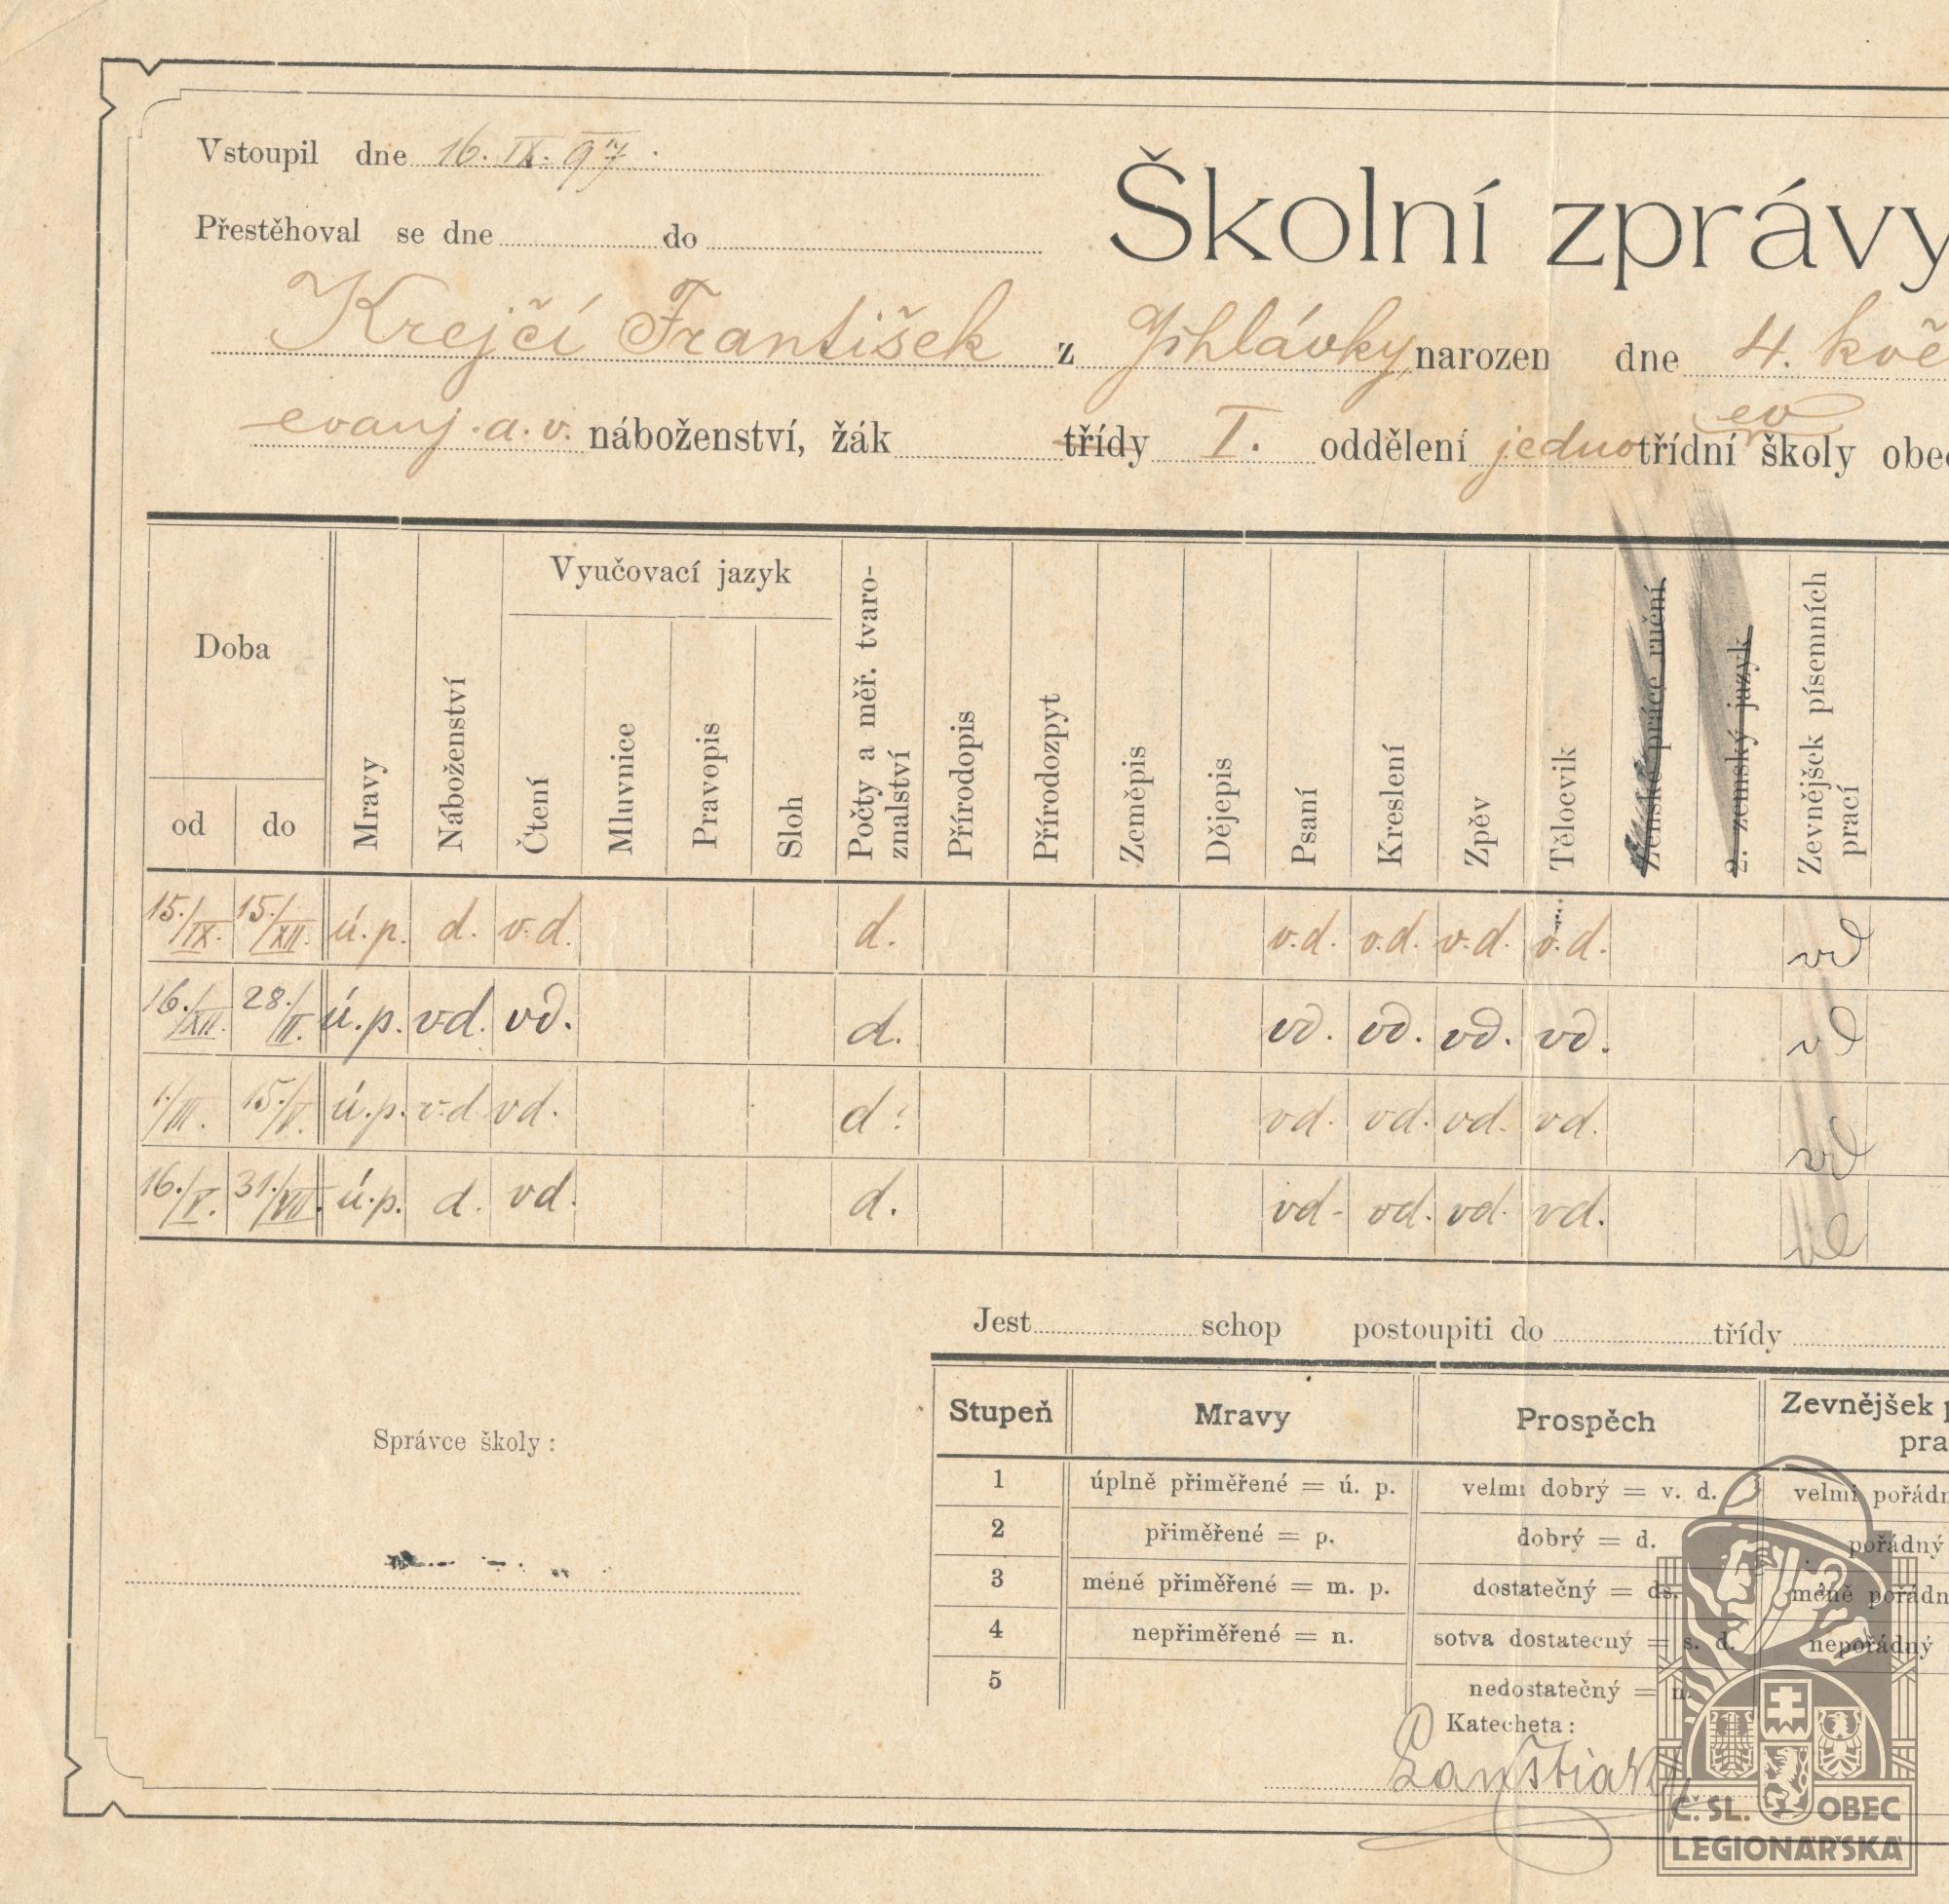 Vstoupil dne 16. IX. 97.
Školní zprávy
Přestěhoval se dne do
Krejčí František z Jihlávky narozen dne 4. kvě
evanj. a. v. náboženství, žák třídy I. oddělení jednotřídní ev školy obec
Doba
od do
Mravy
Náboženství
Vyučovací jazyk
Čtení
Mluvnice
Pravopis
Sloh
Počty a měř. tvaro-
znalství
Přírodopis
Přírodozpyt
Zeměpis
Dějepis
Psaní
Kreslení
Zpěv
Tělocvik
Ženské práce ruční
2. zemský jazyk
Zevnějšek písemních
prací
15./IX. 15./XII. ú.p. d. v.d. d. v.d. v.d. v.d. v.d. vd
16./XII. 28./II. ú.p. vd. vd. d. vd. vd. vd. vd. vd
1./III. 15./V. ú.p. v.d vd. d. vd. vd. vd. vd. vd
16./V. 31./VII. ú.p. d. vd. d. vd. vd. vd. vd. vd
Jest schop postoupiti do třídy
Stupeň Mravy Prospěch Zevnějšek p
pra
1 úplně přiměřené = ú. p. velmi dobrý = v. d. velmi pořádn
2 přiměřené = p. dobrý = d. pořádný
3 méně přiměřené = m. p. dostatečný = ds. méně pořádn
4 nepřiměřené = n. sotva dostatečný = s. d. nepořádný
5 nedostatečný = n.
Správce školy:
Katecheta:
Č. SL. OBEC
LEGIONÁŘSKÁ